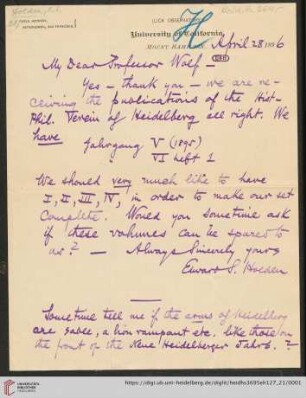 LICK OBSERVATORY
University of California
MOUNT HAMILTON, April 28 1896
My Dear Professor Wolf —
Yes — thank you — we are re-
ceiving the publications of the Hist-
Phil. Verein of Heidelberg all right. We
have Jahrgang V (1895)
" VI heft 1
We should very much like to have
I, II, III, IV, in order to make our set
complete. Would you sometime ask
if these volumes can be spared to
us? — Always Sincerely yours
Edward S. Holden
Sometime tell me if the arms of Heidelberg
are sable, a lion rampant etc. like those on
the front of the Neue Heidelberger Jahrb. ?
https://digi.ub.uni-heidelberg.de/diglit/heidhs3695eh127_21/0001
UNIVERSITÄTS-
BIBLIOTHEK
HEIDELBERG